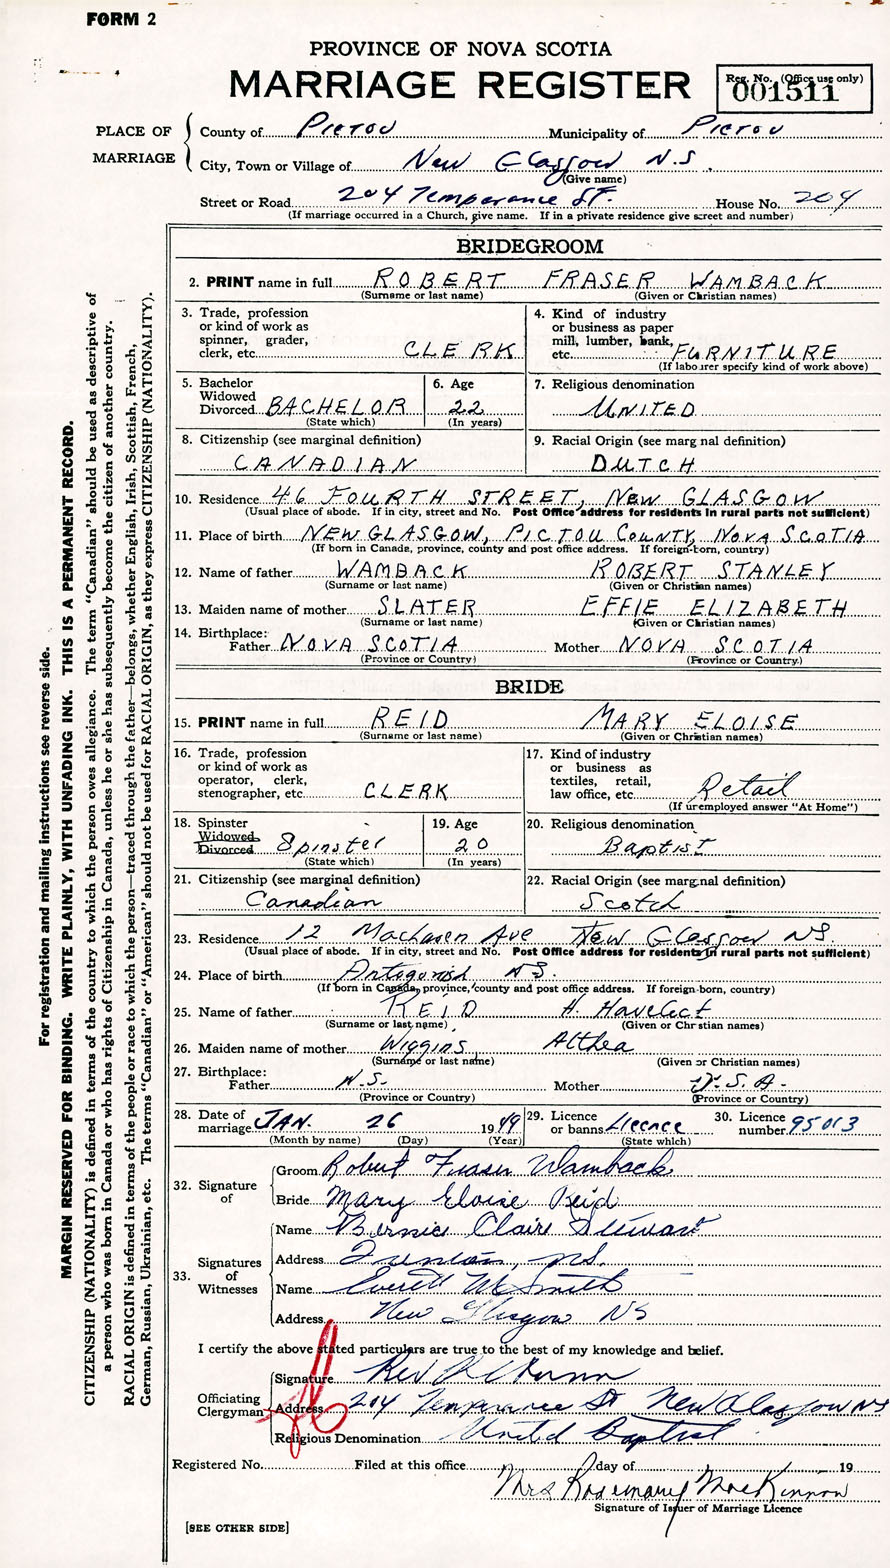 FORM 2
PROVINCE OF NOVA SCOTIA
MARRIAGE REGISTER
Reg. No. (Office use only)
001511
PLACE OF MARRIAGE
County of Pictou Municipality of Pictou
City, Town or Village of New Glasgow N.S
(Give name)
Street or Road 204 Temperance St. House No. 204
(If marriage occurred in a Church, give name. If in a private residence give street and number)
BRIDEGROOM
2. PRINT name in full ROBERT FRASER WAMBACK
(Surname or last name) (Given or Christian names)
3. Trade, profession or kind of work as spinner, grader, clerk, etc. CLERK
4. Kind of industry or business as paper mill, lumber, bank, etc. FURNITURE
(If laborer specify kind of work above)
5. Bachelor Widowed Divorced BACHELOR
(State which)
6. Age 22
(In years)
7. Religious denomination
UNITED
8. Citizenship (see marginal definition)
CANADIAN
9. Racial Origin (see marginal definition)
DUTCH
10. Residence 46 FOURTH STREET, NEW GLASGOW
(Usual place of abode. If in city, street and No. Post Office address for residents in rural parts not sufficient)
11. Place of birth NEW GLASGOW, PICTOU COUNTY, NOVA SCOTIA
(If born in Canada, province, county and post office address. If foreign-born, country)
12. Name of father WAMBACK ROBERT STANLEY
(Surname or last name) (Given or Christian names)
13. Maiden name of mother SLATER EFFIE ELIZABETH
(Surname or last name) (Given or Christian names)
14. Birthplace:
Father NOVA SCOTIA Mother NOVA SCOTIA
(Province or Country) (Province or Country.)
BRIDE
15. PRINT name in full REID MARY ELOISE
(Surname or last name) (Given or Christian names)
16. Trade, profession or kind of work as operator, clerk, stenographer, etc. CLERK
17. Kind of industry or business as textiles, retail, law office, etc. Retail
(If unemployed answer "At Home")
18. Spinster Widowed Divorced Spinster
(State which)
19. Age 20
(In years)
20. Religious denomination
Baptist
21. Citizenship (see marginal definition)
Canadian
22. Racial Origin (see marginal definition)
Scotch
23. Residence 12 MacLaren Ave New Glasgow N.S.
(Usual place of abode. If in city, street and No. Post Office address for residents in rural parts not sufficient)
24. Place of birth Antigonish N.S.
(If born in Canada, province, county and post office address. If foreign-born, country)
25. Name of father REID H. Havelect
(Surname or last name) (Given or Christian names)
26. Maiden name of mother Wiggins Althea
(Surname or last name) (Given or Christian names)
27. Birthplace:
Father N.S. Mother U.S.A.
(Province or Country) (Province or Country)
28. Date of marriage JAN. 26 1949
(Month by name) (Day) (Year)
29. Licence or banns Licence
(State which)
30. Licence number 95013
32. Signature of
Groom Robert Fraser Wamback
Bride Mary Eloise Reid
33. Signatures of Witnesses
Name Bernice Claire Stewart
Address Trenton, N.S.
Name Everett M Smith
Address New Glasgow NS
I certify the above stated particulars are true to the best of my knowledge and belief.
Officiating Clergyman
Signature Rev
Address 204 Temperance St New Glasgow NS
Religious Denomination United Baptist
Registered No. Filed at this office day of 19
Mrs Rosemary MacKinnon
Signature of Issuer of Marriage Licence
[SEE OTHER SIDE]
For registration and mailing instructions see reverse side.
MARGIN RESERVED FOR BINDING. WRITE PLAINLY, WITH UNFADING INK. THIS IS A PERMANENT RECORD.
CITIZENSHIP (NATIONALITY) is defined in terms of the country to which the person owes allegiance. The term "Canadian" should be used as descriptive of
a person who was born in Canada or who has rights of Citizenship in Canada, unless he or she has subsequently become the citizen of another country.
RACIAL ORIGIN is defined in terms of the people or race to which the person—traced through the father—belongs, whether English, Irish, Scottish, French,
German, Russian, Ukrainian, etc. The terms "Canadian" or "American" should not be used for RACIAL ORIGIN, as they express CITIZENSHIP (NATIONALITY).